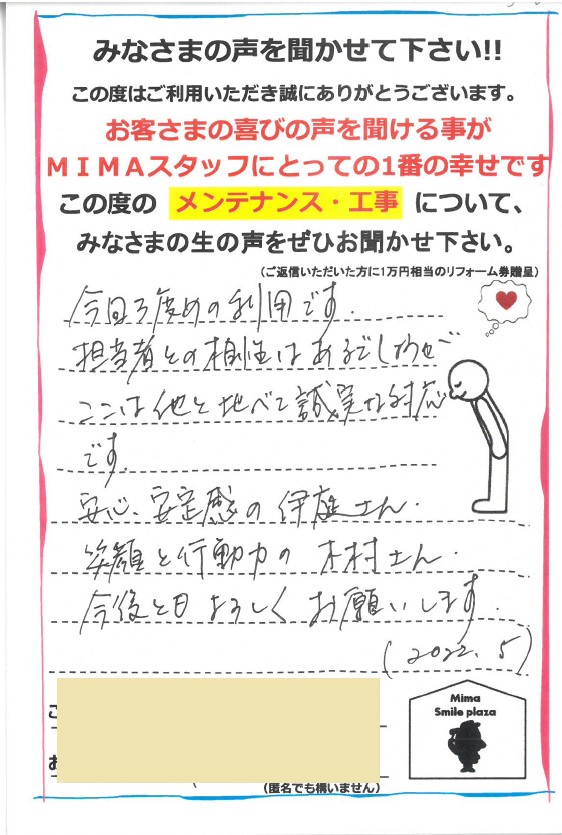 みなさまの声を聞かせて下さい!!
この度はご利用いただき誠にありがとうございます。
お客さまの喜びの声を聞ける事が
MIMAスタッフにとっての1番の幸せです
この度の メンテナンス・工事 について、
みなさまの生の声をぜひお聞かせ下さい。
(ご返信いただいた方に1万円相当のリフォーム券贈呈)
今回3度めの利用です.
担当者との相性はあるでしょうが
ここは他と比べて誠実な対応
です.
安心、安定感の伊庭さん.
笑顔と行動力の木村さん.
今後とも よろしく お願いします.
(2022.5)
Mima
Smile plaza
(匿名でも構いません)